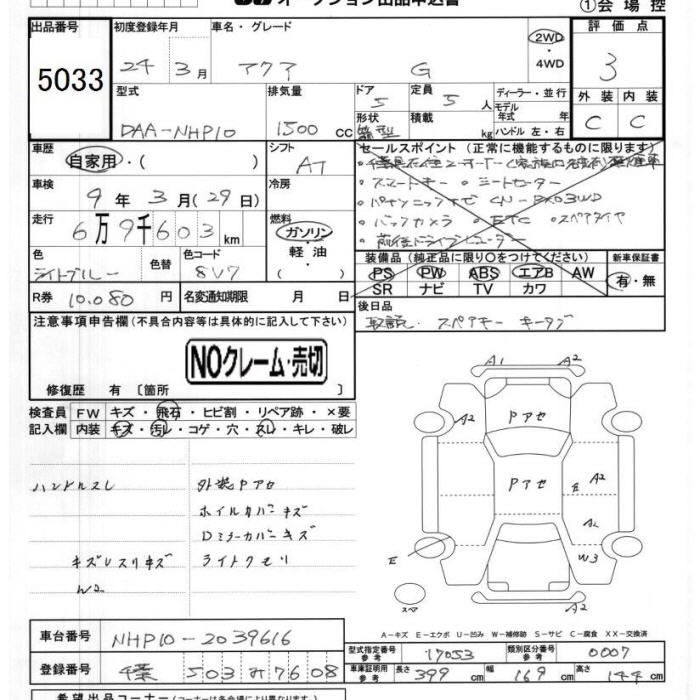 オークション出品申込書
①会場控
出品番号 初度登録年月 車名・グレード 評価点
5033 24年3月 アクア G 2WD・4WD 3
型式 排気量 ドア 定員 ディーラー・並行
DAA-NHP10 1500cc 5 5人 モデル年式 年式
形状 積載 kg ハンドル 左・右
箱型
外装 内装
C C
車歴 自家用・( ) シフト AT
車検 9年3月(29日) 冷房
走行 6万9千603km 燃料 ガソリン・軽油・( )
色 ライトブルー 色替 色コード 8V7
R券 10,080円 名変通知期限 月 日
セールスポイント(正常に機能するものに限ります)
スマートキー シートヒーター
パナソニックナビ CN-
バックカメラ ETC スペアタイヤ
前後ドライブレコーダー
装備品(純正品に限り○をつけてください) 新車保証書
PS PW ABS エアB AW 有・無
SR ナビ TV カワ
後日品
取説・スペアキー キータグ
注意事項申告欄(不具合内容等は具体的に記入して下さい)
NOクレーム・売切
修復歴 有〔箇所 〕
検査員 FW キズ・飛石・ヒビ割・リペア跡・×要
記入欄 内装 キズ・汚レ・コゲ・穴・スレ・キレ・破レ
ハンドルスレ 外装Pアセ
ホイルカバーキズ
Dミラーカバーキズ
キズレスリキズ ライトクモリ
W2
A1 A2
A2 Pアセ
Pアセ E A2
A2
E W3
スペア A2
A-キズ E-エクボ U-凹み W-補修跡 S-サビ C-腐食 XX-交換済
車台番号 NHP10-2039616
型式指定番号 参考 17053 類別区分番号 参考 0007
登録番号 千葉 503 み 7608
車庫証明用 参考 長さ 399cm 幅 169cm 高さ 144cm
希望出品コーナー